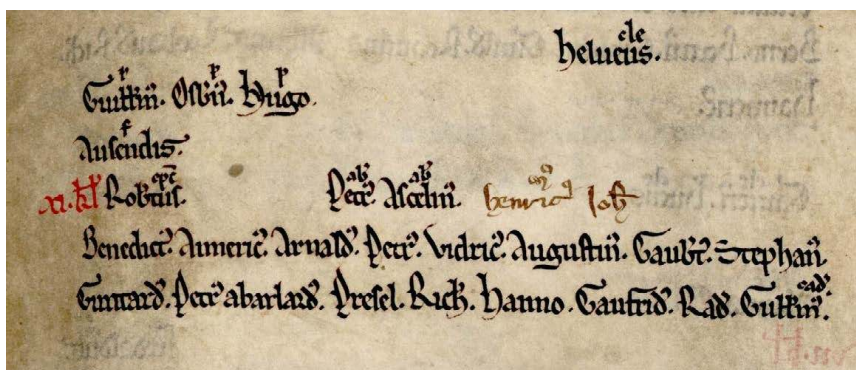 helucius. cle
Guillm̄. p Osb'n̄. p Hugo. p
Ausendis. f
xi. kl Rob'tus. ep̄c Petr'. ab' Ascelin'. ab' henric' Joh'
Benedict'. Aimeric'. Arnald'. Petr'. Vidric'. Augustin'. Gaub't'. Stephan'.
Guntard'. Petr' abarlard'. Presel. Rich'. hanno. Gaufrid'. Rad'. Guillm'.